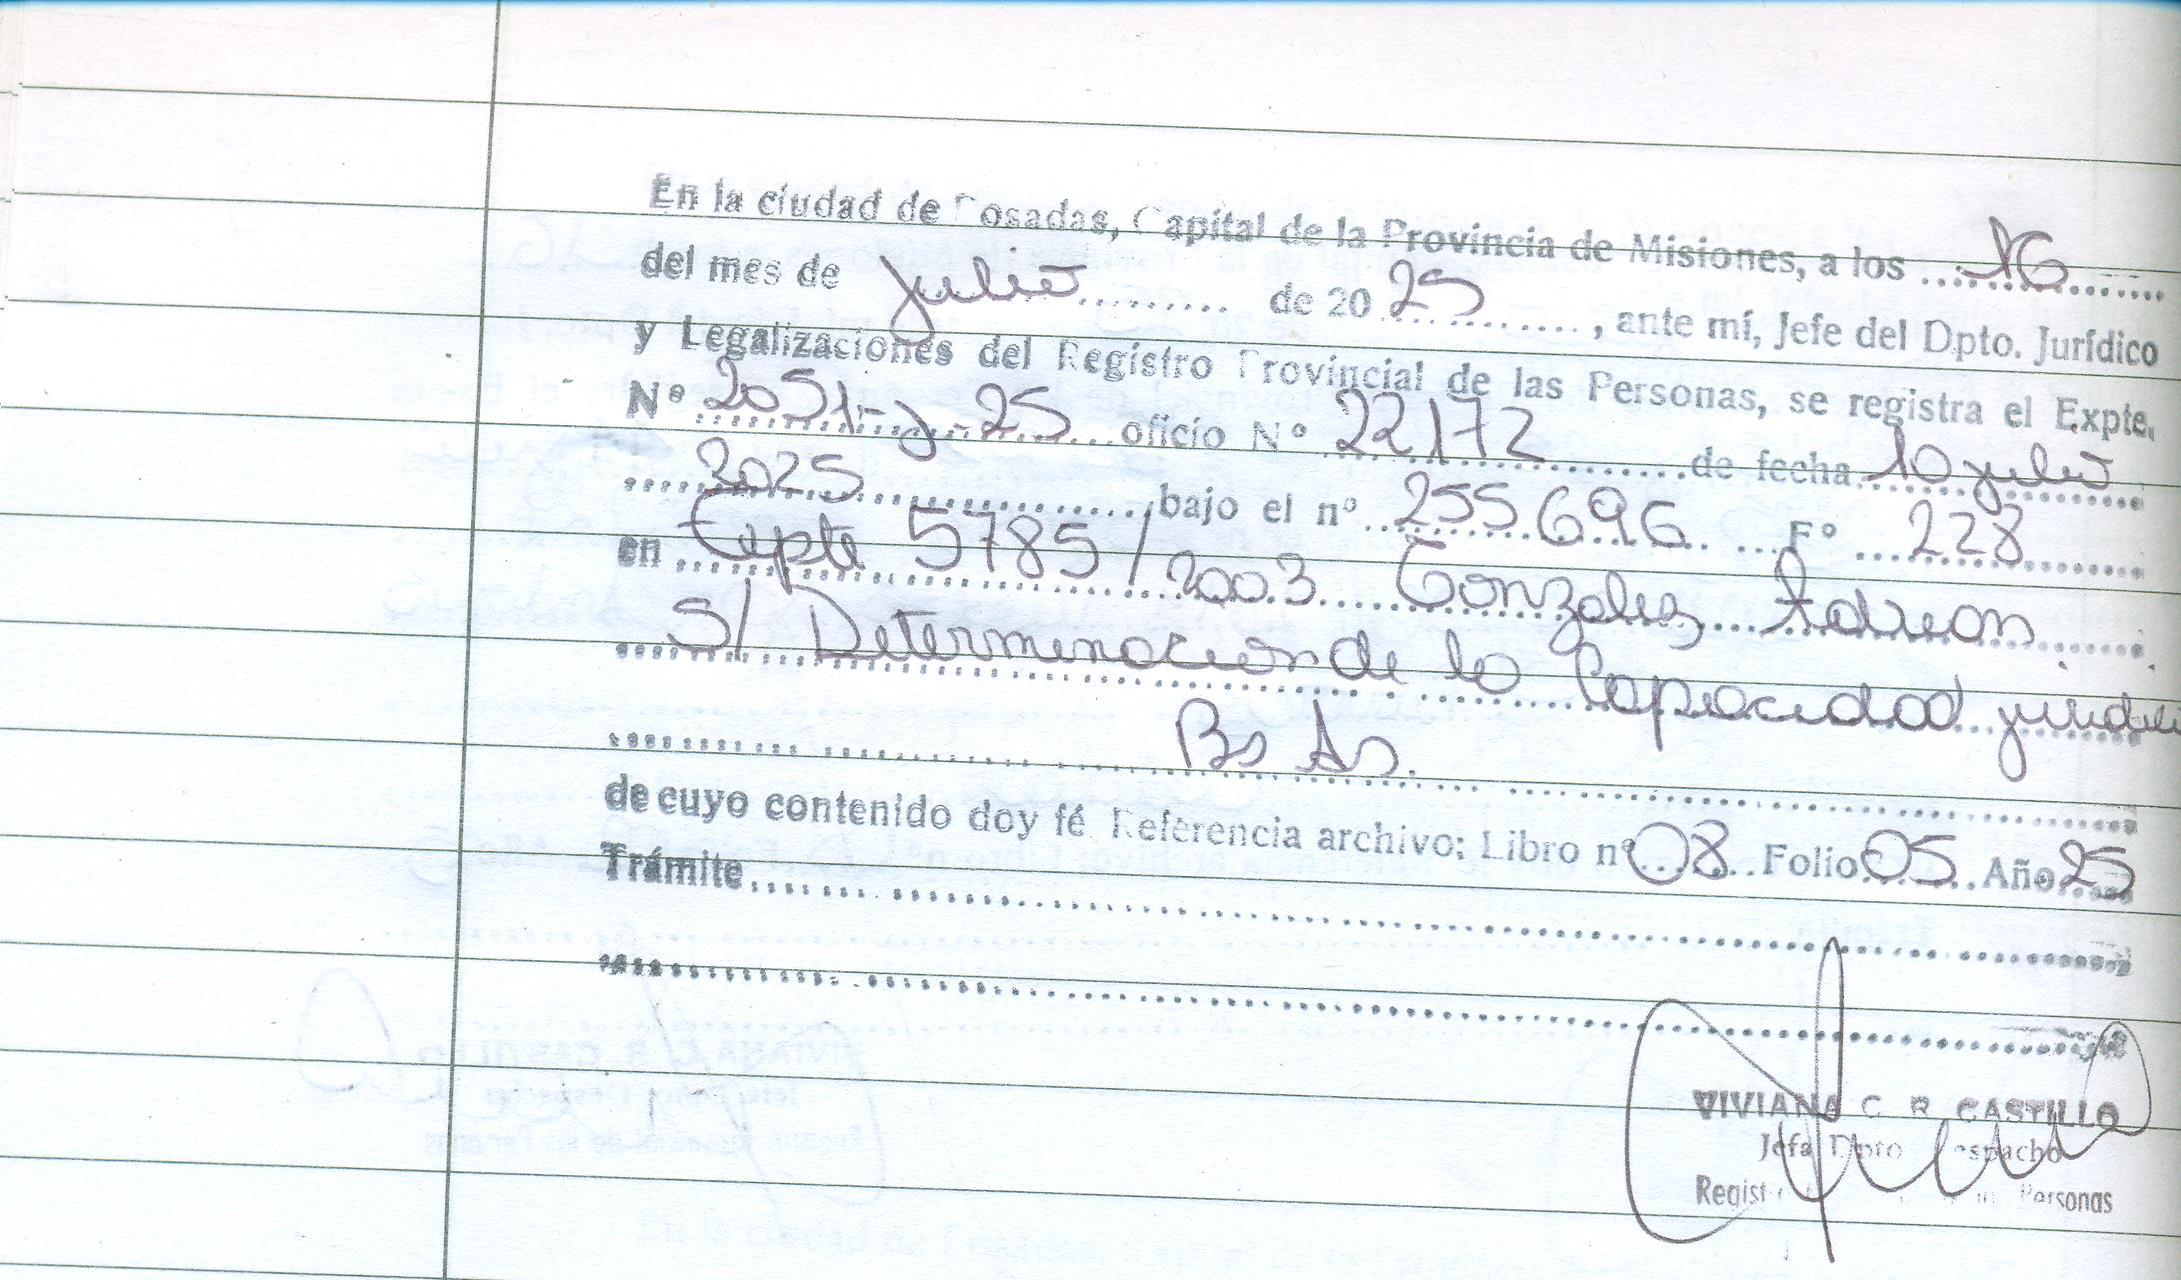 En la ciudad de Posadas, Capital de la Provincia de Misiones, a los 16
del mes de julio de 2025, ante mí, Jefe del Dpto. Jurídico
y Legalizaciones del Registro Provincial de las Personas, se registra el Expte.
Nº 2051-J-25 oficio Nº 22172 de fecha 10 julio
2025 bajo el nº 255696 Fº 228
en Expte 5785/2003 Gonzalez Adrian
S/ Determinacion de la Capacidad juridi
Bs As.
de cuyo contenido doy fé. Referencia archivo: Libro nº 08 Folio 05 Año 25
Trámite
VIVIANA C. R. CASTILLO
Jefa Dpto Despacho
Regist Personas